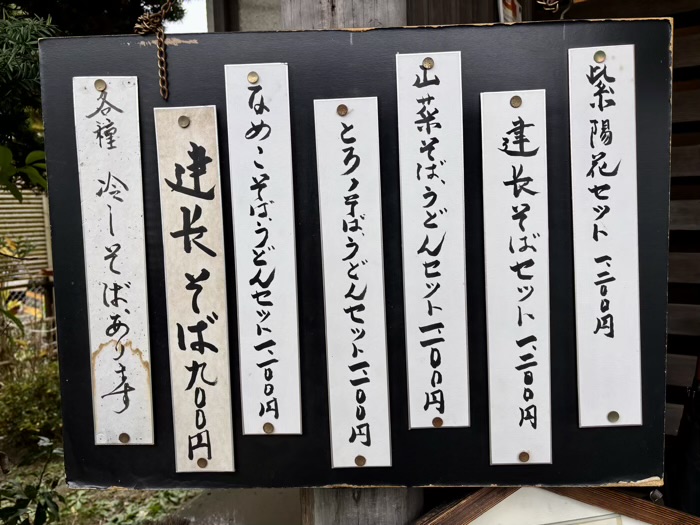 紫陽花セット 一、二〇〇円
建長そばセット 一、二〇〇円
山菜そば、うどんセット 一、二〇〇円
とろろそば、うどんセット 一、二〇〇円
なめこそば、うどんセット 一、一〇〇円
建長そば 九〇〇円
各種 冷しそば、あります